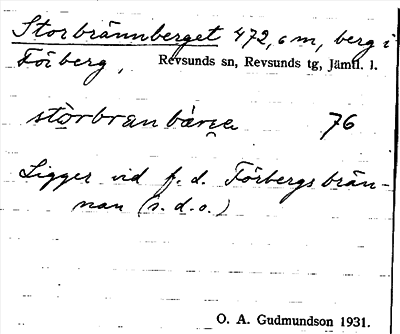 Storbrännberget 472,6 m, berg i
Förberg, Revsunds sn, Revsunds tg, Jämtl. l.
stòrbran bàrɛe 76
Ligger vid f. d. Förbergsbrän-
nan (s. d. o.)
O. A. Gudmundson 1931.